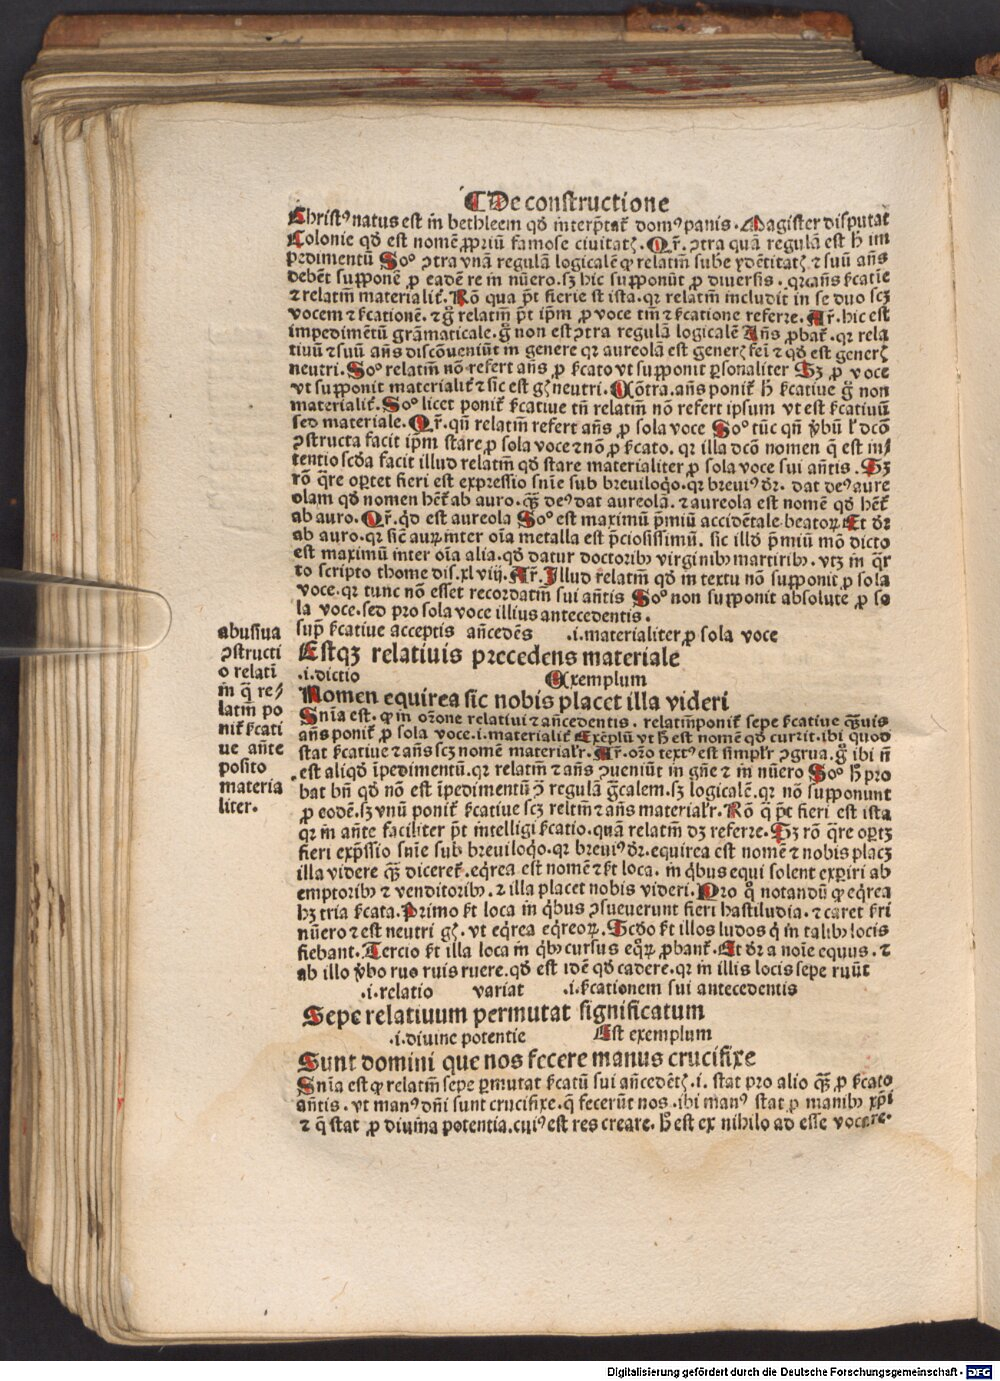 ⁋De constructione
Christꝰ natus est in̄ bethleem qd̄ in̄terp̄tat̄ domꝰ panis. Magister disputat
Colonie qd̄ est nomē ꝓpriū famose ciuitatꝭ. Qr̄. ꝯtra quā regulā est h̄ im
pedimentū Soᵒ ꝯtra vnā regulā logicalē ꝙ relatm̄ sube ydētitatꝭ ⁊ suū añs
debēt supponē ꝓ eadē re in nūero. sꝫ hic supponūt ꝓ diuersis. qꝛ añs ſcatīe
⁊ relatm̄ materialit̄. Rō qua p̄t fierie st ista. qꝛ relatm̄ includit in se duo scꝫ
vocem ⁊ ſcationē. ⁊ g̊ relatm̄ p̄t ip̄m ꝓ voce tm̄ ⁊ ſcatione referre. Ar̄. hic est
impedimētū grāmaticale. g̊ non est ꝯtra regulā logicalē Añs ꝓbat̄. qꝛ rela
tiuū ⁊ suū añs discōueniūt in genere qꝛ aureolā est generꝭ fei̅ ⁊ qd̄ est generꝭ
neutri. Soᵒ relatm̄ nō refert añs ꝓ ſcato vt supponit ꝑsonaliter Sꝫ ꝓ voce
vt supponit materialit̄ ⁊ sic est gꝭ neutri. Cōtra. añs ponit̄ h̄ ſcatiue g̊ non
materialit̄. Soᵒ licet ponit̄ ſcatiue tn̄ relatm̄ nō refert ipsum vt est ſcatiuū
sed materiale. Qr̄. qn̄ relatm̄ refert añs ꝓ sola voce Soᵒ tūc qn̄ v̄bū l̄ dcō
ꝯstructa facit ip̄m stare ꝓ sola voce ⁊ nō ꝓ ſcato. qꝛ illa dcō nomen q̄ est in⸗
tentio scd̄a facit illud relatm̄ qd̄ stare materialiter ꝓ sola voce sui añtis. Sꝫ
rō q̄re oꝑtet fieri est expressio snīe sub breuiloq̊o. qꝛ breuiꝰ dr̄. dat deꝰ aure
olam qd̄ nomen h̄et̄ ab auro. qꝫ̄ deꝰ dat aureolā. ⁊ aureola est nomē qd̄ h̄et̄
ab auro. Qr̄. q̊d est aureola Soᵒ est maximū p̄miū accidētale beatoꝝ Et dr̄
ab auro. qꝛ sic̄ aurꝝ inter oīa metalla est p̄ciosissimū. sic illd̄ p̄miū mō dicto
est maximū inter oīa alia. qd̄ datur doctoribꝰ virginibꝰ martiribꝰ. vtꝫ in qr̄
to scripto thome dis. xl viij. Ar̄. Illud r̄elatm̄ qd̄ in textu nō supponit ꝓ sola
voce. qꝛ tunc nō esset recordatm̄ sui añtis Soᵒ non supponit absolute ꝓ so
la voce. sed pro sola voce illius antecedentis.
sup̄ ſcatiue acceptis añcedēs .i. materialiter ꝓ sola voce
Estqꝫ relatiuis precedens materiale
.i. dictio Exemplum
Nomen equirea sic nobis placet illa videri
abusiua
ꝯstructi
o relati̅
in̄ q̄ re⸗
latm̄ po
nit̄ ſcati
ue añte
posito
materia
liter.
Snīa est. ꝙ in̄ orōne relatiui ⁊ añcedentis. relatm̄ ponit̄ sepe ſcatiue qꝫ̄uis
añs ponit̄ ꝓ sola voce .i. materialit̄ Exēplū vt h̄ est nomē qd̄ currit. ibi quod
stat ſcatiue ⁊ añs scꝫ nomē materialr̄. Ar̄. orō textꝰ est simplr̄ ꝯgrua. g̊ ibi n̄
est aliqd̄ īpedimentū. qꝛ relatm̄ ⁊ añs ꝯueniūt in gn̄e ⁊ in̄ nūero Soᵒ h̄ pro
bat bn̄ qd̄ nō est īpedimentū ꝯ̄ regulā g̅calem. sꝫ logicalē. qꝛ nō supponunt
ꝓ eodē. sꝫ vnū ponit̄ ſcatiue scꝫ reltm̄ ⁊ añs materialr̄. Rō q̄ p̄t fieri est ista
qꝛ in̄ añte faciliter p̄t in̄telligi ſcatio. quā relatm̄ dꝫ referre. Sꝫ rō q̄re oꝑtꝫ
fieri exp̄ssio snīe sub breuiloq̊o. qꝛ breuiꝰ dr̄. equirea est nomē ⁊ nobis placꝫ
illa videre qꝫ̄ diceret̄. eq̊rea est nomē ⁊ ſt̄ loca. in q̊bus equi solent exꝑiri ab
emptoribꝰ ⁊ venditoribꝰ. ⁊ illa placet nobis videri. Pro q̊ notandū ꝙ eq̊rea
hꝫ tria ſcata. Primo ſt̄ loca in̄ q̊bus ꝯsueuerunt fieri hastiludia. ⁊ caret ſri
nūero ⁊ est neutri gꝭ. vt eq̊rea eq̊reoꝝ. Scd̄o ſt̄ illos ludos q̊ in̄ talibꝰ locis
fiebant. Tercio ſt̄ illa loca in̄ q̊bꝰ cursus eq̊ꝝ ꝓbant̄. Et dr̄ a noīe equus. ⁊
ab illo v̄bo ruo ruis ruere. qd̄ est idē qd̄ cadere. qꝛ in̄ illis locis sepe ruūt
.i. relatio variat .i. ſcationem sui antecedentis
Sepe relatiuum permutat significatum
.i. diuine potentie Est exemplum
Sunt domini que nos fecere manus crucifixe
Snīa est ꝙ relatm̄ sepe ꝑmutat ſcatū sui añcedētꝭ .i. stat pro alio qꝫ̄ ꝓ ſcato
añtis. vt manꝰ dn̄i sunt crucifixe. q̄ fecerūt nos. ibi manꝰ stat ꝓ manibꝰ xp̄i
⁊ q̄ stat ꝓ diuina potentia. cuiꝰ est res creare. h̄ est ex nihilo ad esse vocare.
Digitalisierung gefördert durch die Deutsche Forschungsgemeinschaft - DFG